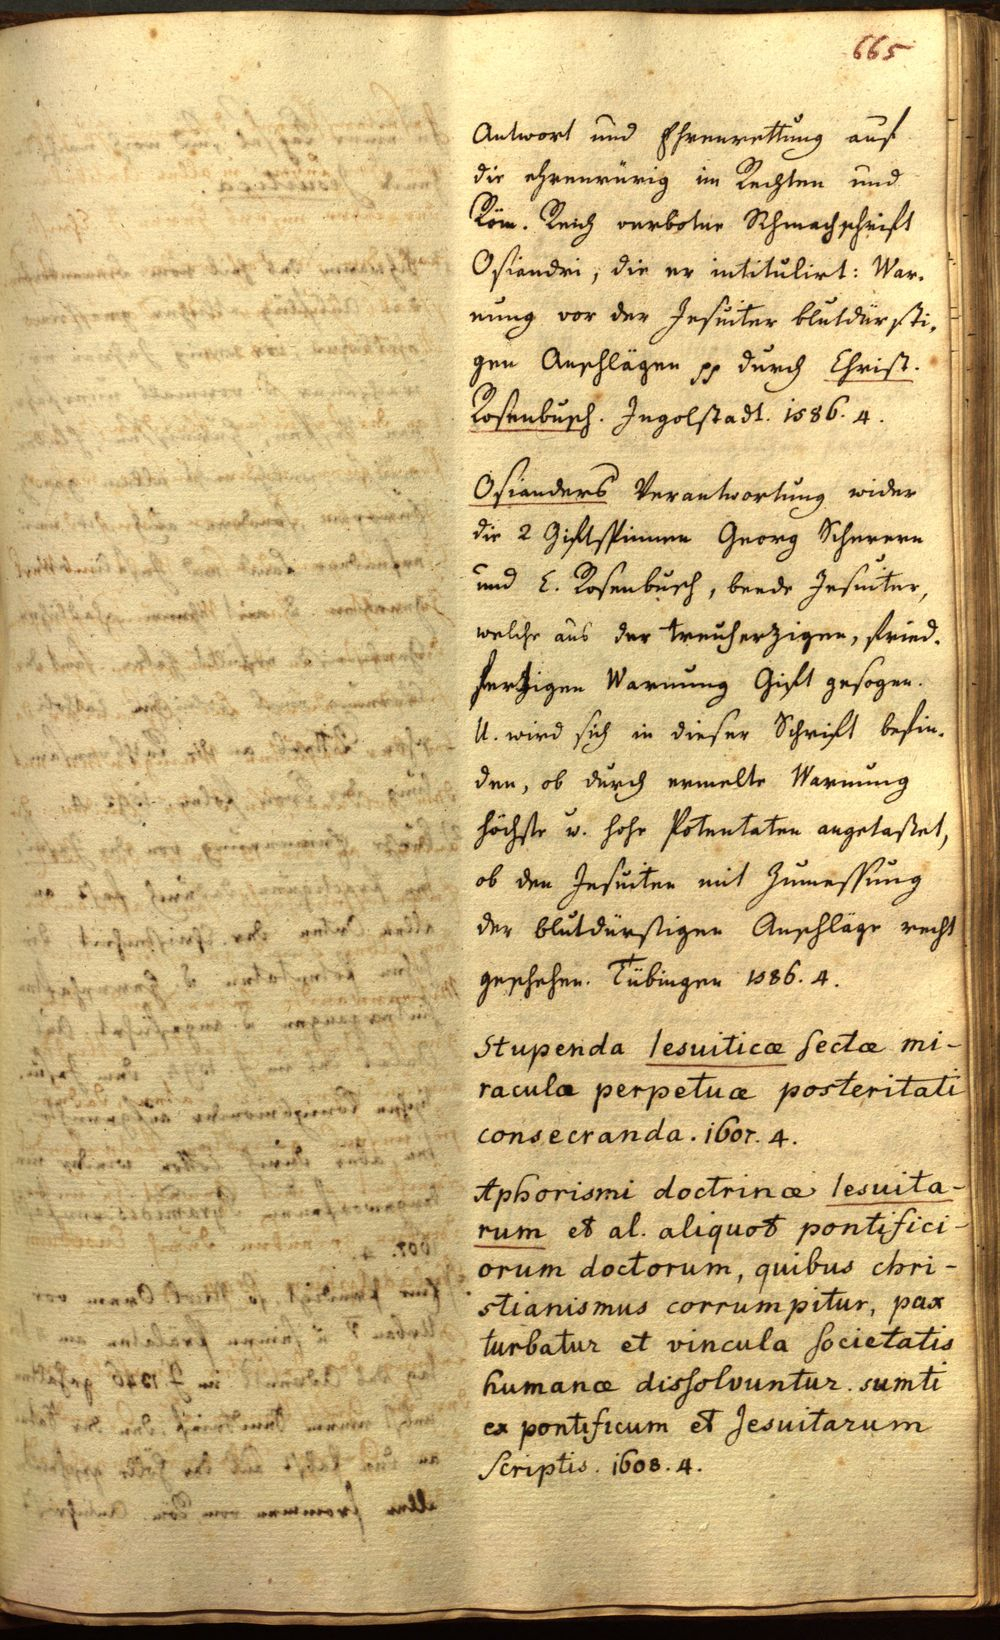 665
Antwort und Ehrenrettung auf
die ehrenrürig im Rechten und
Röm. Reich verbotne Schmachschrift
Osiandri, die er intitulirt: War-
nung vor der Jesuiter blutdürsti-
gen Anschlägen pp durch Christ.
Rosenbusch. Ingolstadt. 1586. 4.
Osianders Verantwortung wider
die 2 Giftspinnen Georg Scherern
und C. Rosenbusch, beede Jesuiter,
welche aus der treuherzigen, fried-
ferzigen Warnung Gift gesogen.
U. wird sich in dieser Schrift befin-
den, ob durch ermelte Warnung
höchste u. hohe Potentaten angetastet,
ob den Jesuiten mit Zumessung
der blutdürstigen Anschläge recht
geschehen. Tübingen 1586. 4.
Stupenda Iesuiticæ sectæ mi-
racula perpetuæ posteritati
consecranda. 1607. 4.
Aphorismi doctrinæ Iesuita-
rum et al. aliquot pontifici-
orum doctorum, quibus chri-
stianismus corrumpitur, pax
turbatur et vincula societatis
humanæ dissolvuntur. sumti
ex pontificum et Jesuitarum
scriptis. 1608. 4.